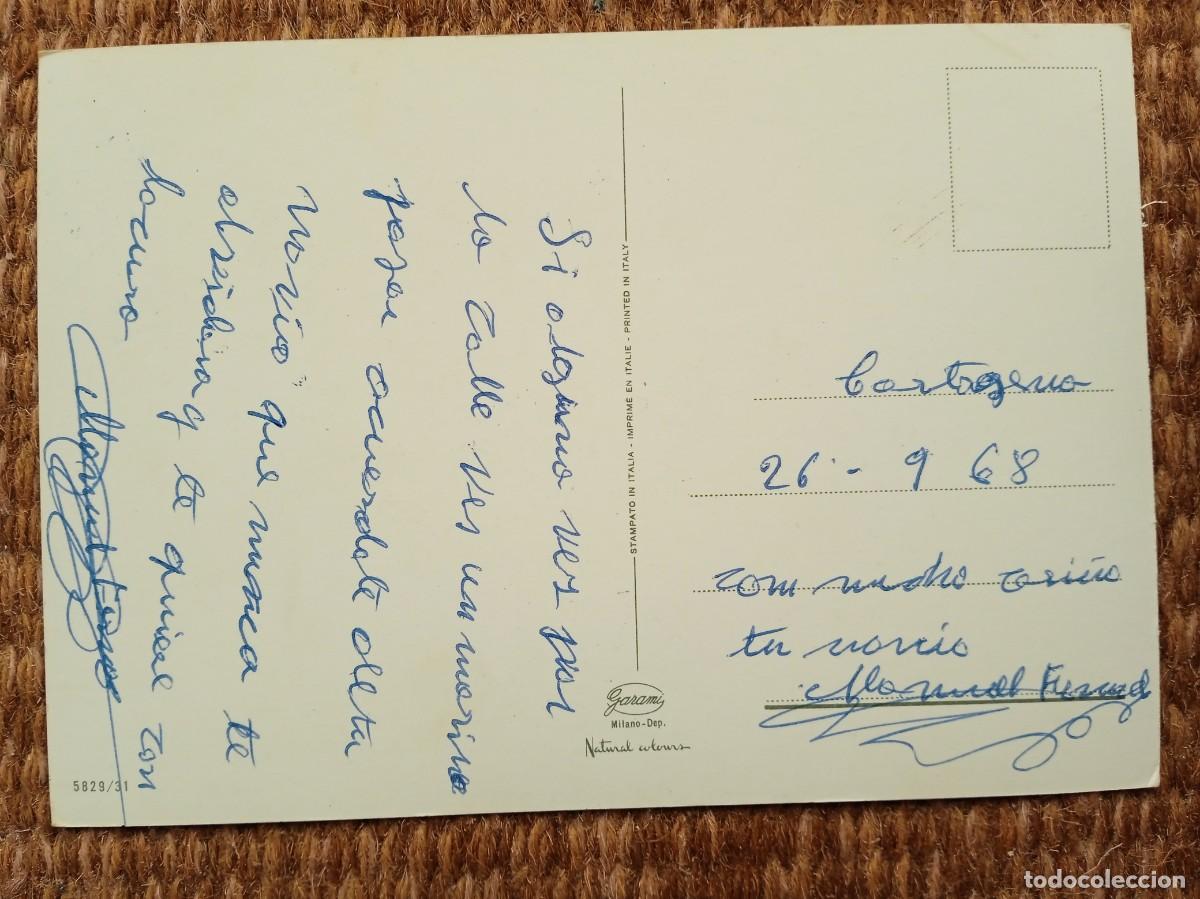 Si alguna ves por
la calle ves un marino
pasar acuerdate de tu
novio que nunca te
olvidara y te quiere con
locura
5829/31
STAMPATO IN ITALIA - IMPRIME EN ITALIE - PRINTED IN ITALY
Garami
Milano-Dep.
Natural colours
Cartagena
26 - 9 68
con mucho cariño
tu novio
Manuel
todocoleccion